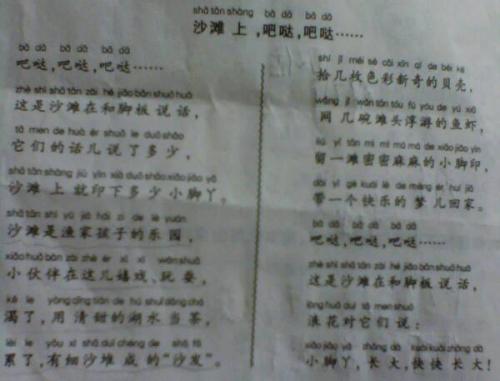 shā tān shàng bā dā bā dā
沙滩上,吧哒,吧哒……
bā dā bā dā bā dā
吧哒,吧哒,吧哒……
zhè shì shā tān zài hé jiǎo bǎn shuō huà
这是沙滩在和脚板说话,
tā men de huà ér shuō le duō shǎo
它们的话儿说了多少,
shā tān shàng jiù yìn xià duō shǎo xiǎo jiǎo yā
沙滩上就印下多少小脚丫。
shā tān shì yú jiā hái zi de lè yuán
沙滩是渔家孩子的乐园,
xiǎo huǒ bàn zài zhè ér xī xì wán shuǎ
小伙伴在这儿嬉戏、玩耍,
kě le yòng qīng tián de hú shuǐ dāng chá
渴了,用清甜的湖水当茶,
lèi le yǒu xì shā duī chéng de shā fā
累了,有细沙堆成的“沙发”。
shí jǐ méi sè cǎi xīn qí de bèi ké
拾几枚色彩新奇的贝壳,
wǎng jǐ wǎn tān tóu fú yóu de yú xiā
网几碗滩头浮游的鱼虾,
liú yī tān mì mì má má de xiǎo jiǎo yìn
留一滩密密麻麻的小脚印,
dài yī gè kuài lè de mèng ér huí jiā
带一个快乐的梦儿回家。
bā dā bā dā bā dā
吧哒,吧哒,吧哒……
zhè shì shā tān zài hé jiǎo bǎn shuō huà
这是沙滩在和脚板说话,
làng huā duì tā men shuō
浪花对它们说:
xiǎo jiǎo yā zhǎng dà kuài kuài zhǎng dà
小脚丫,长大,快快长大!